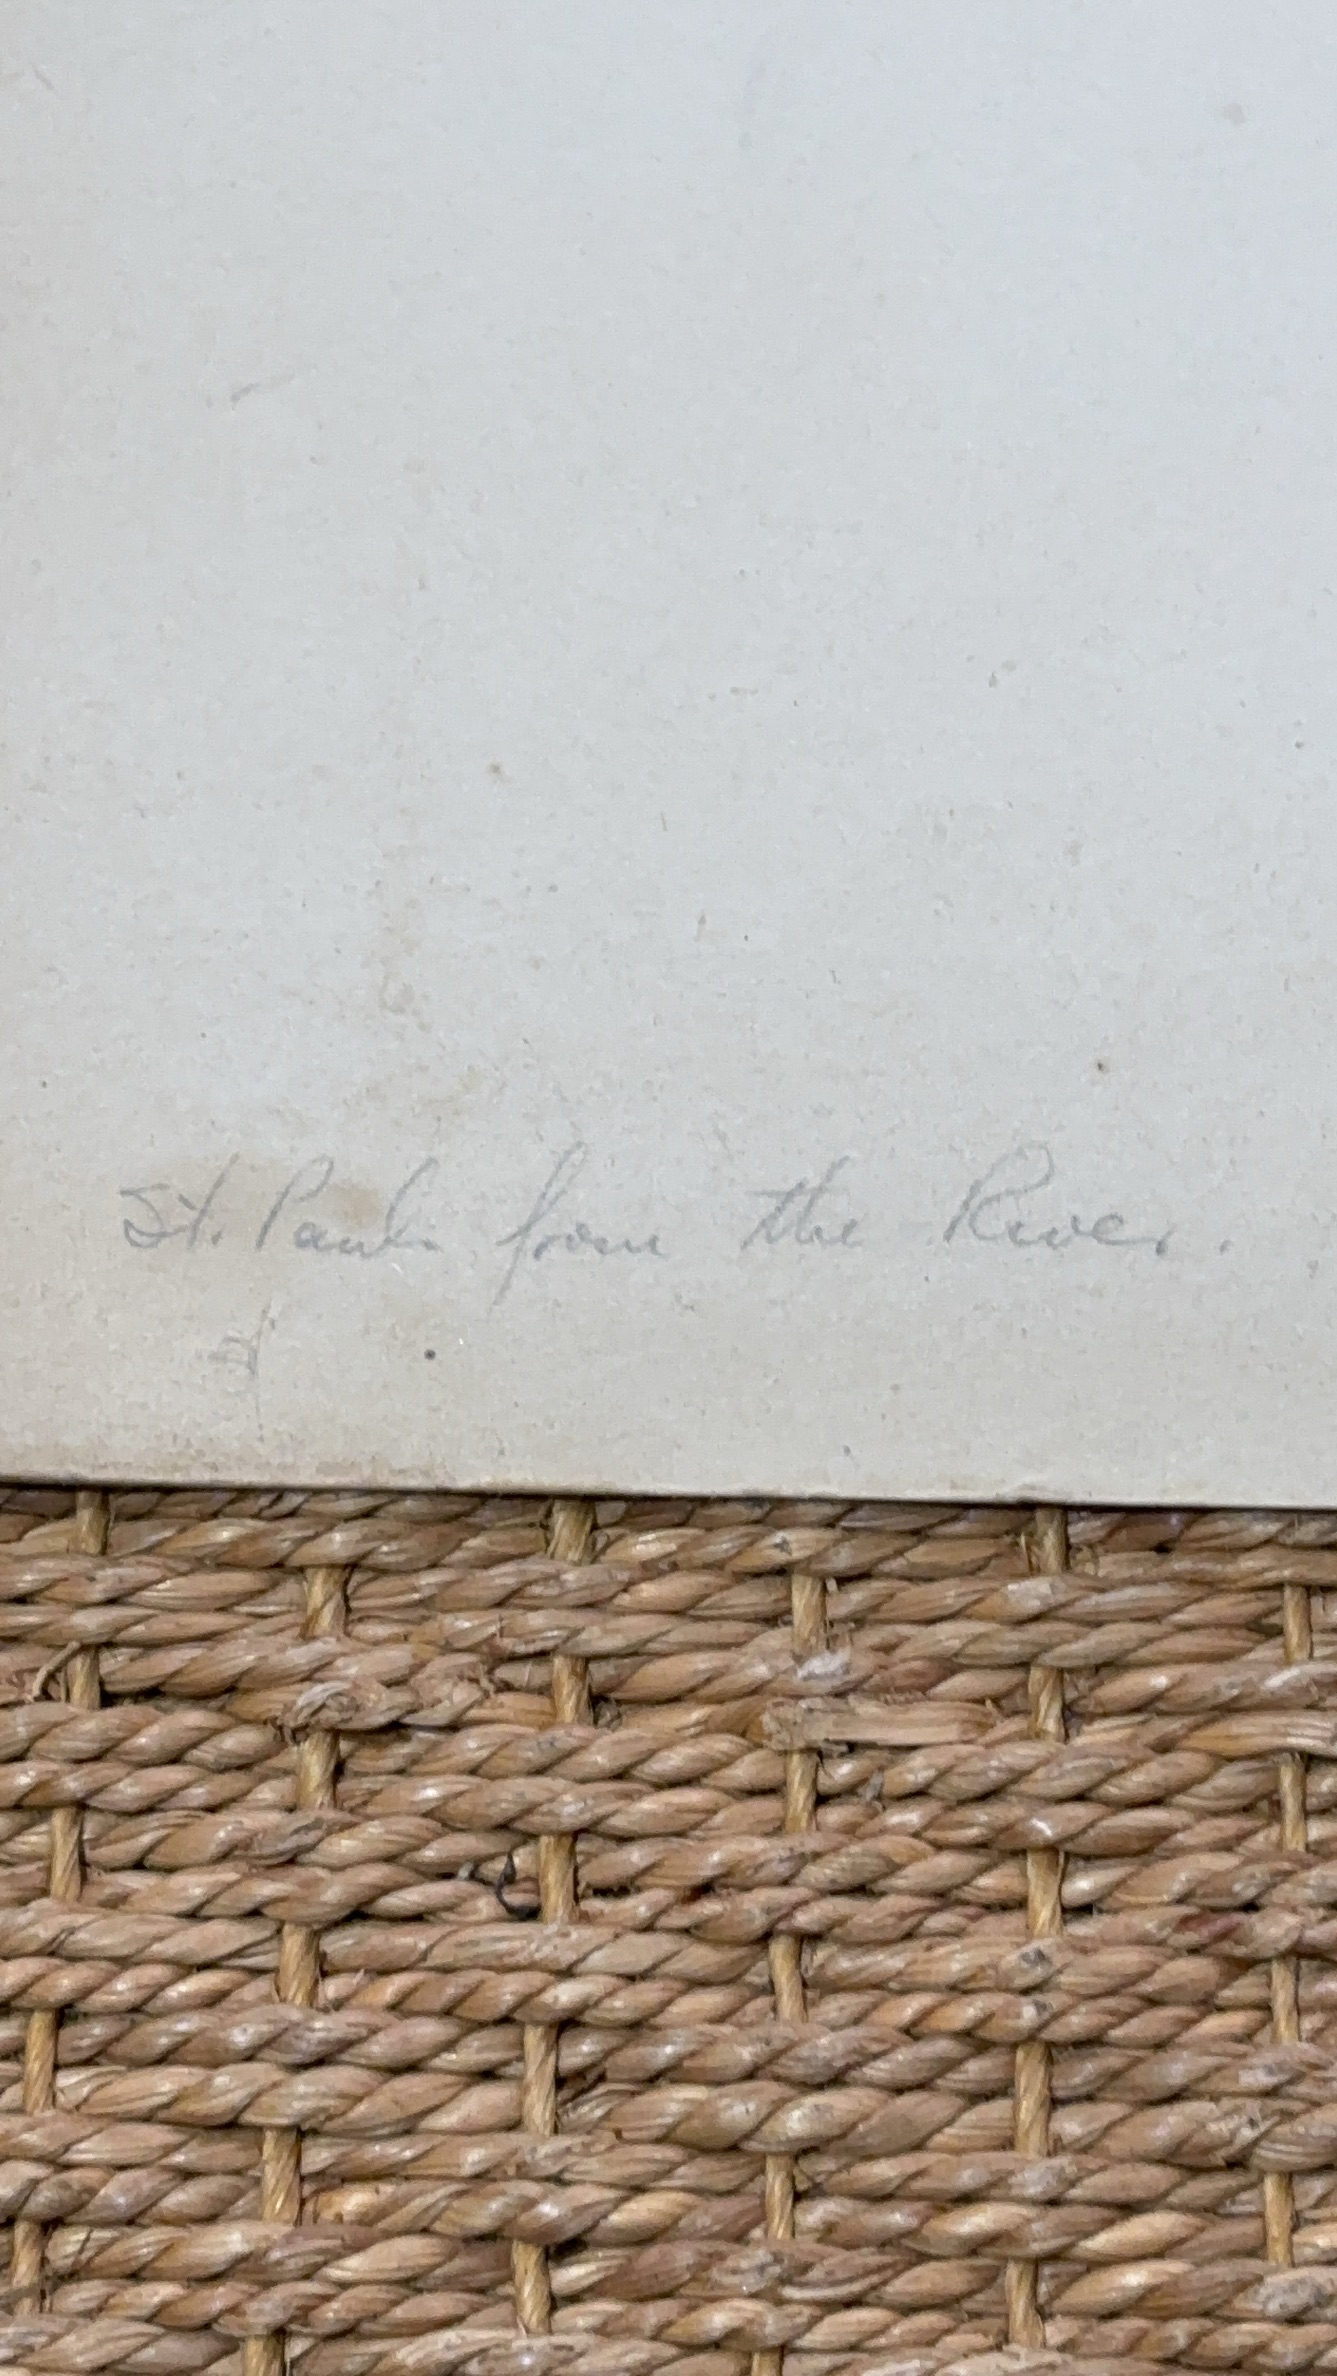 St. Pauls from the River.